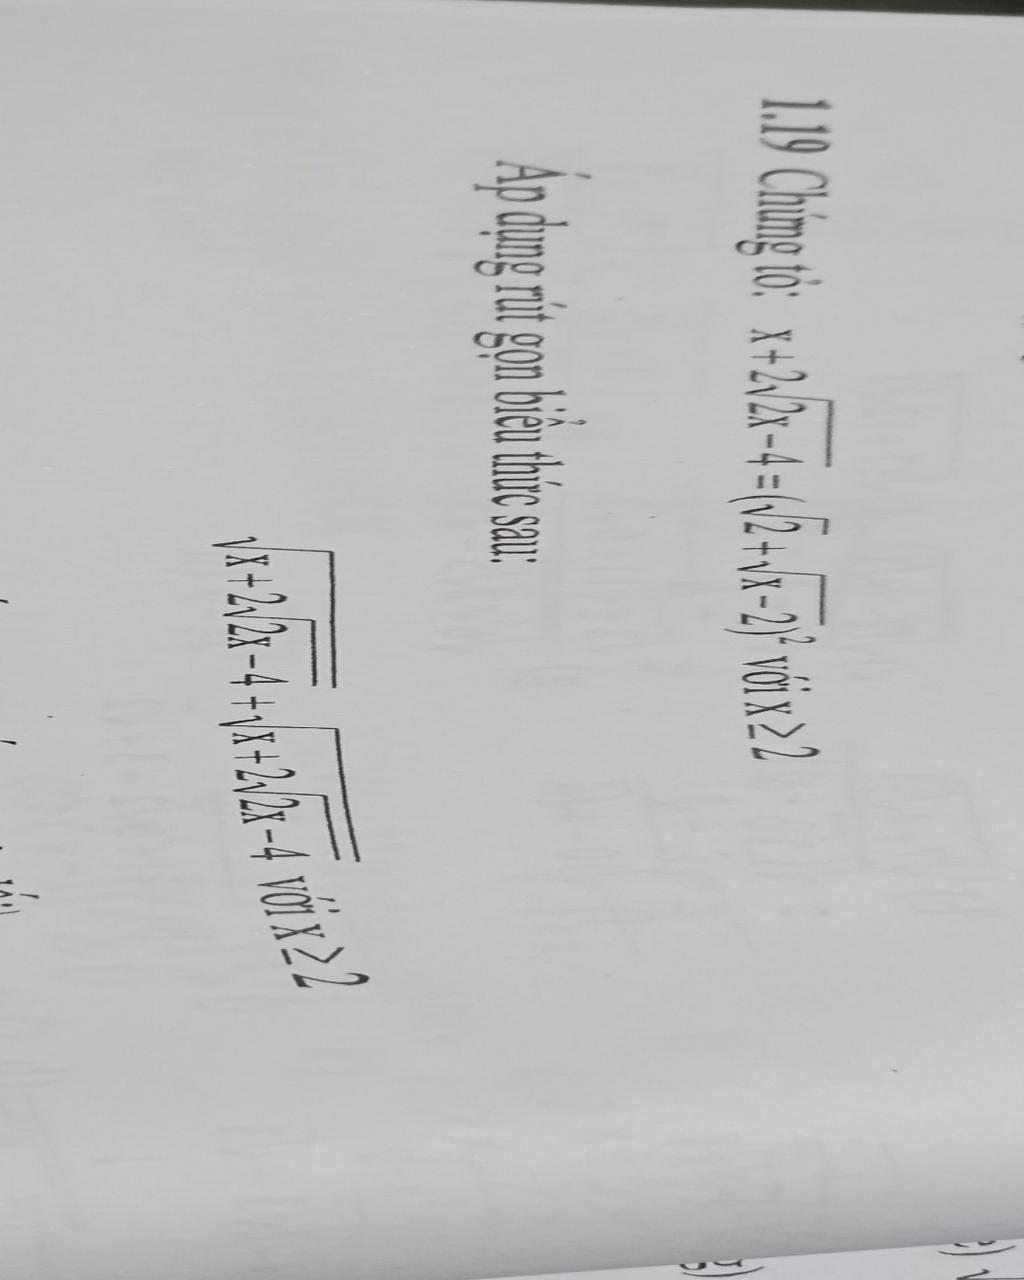 1.19 Chứng tỏ: x+2√2x−4=(√2+√x−2)² với x≥2
Áp dụng rút gọn biểu thức sau:
√x+2√2x−4+√x+2√2x−4 với x≥2